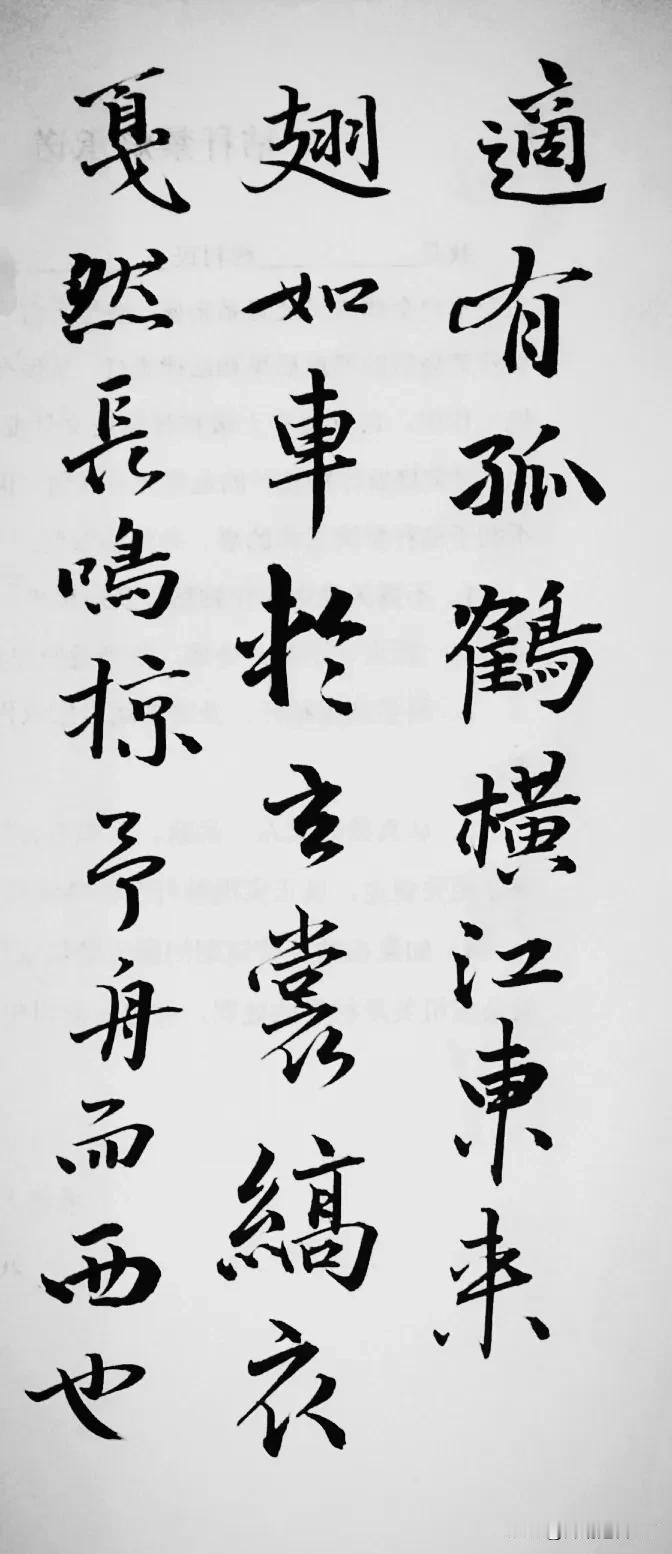 適有孤鶴橫江東来
翅如車輪玄裳縞衣
戛然長鳴掠予舟而西也